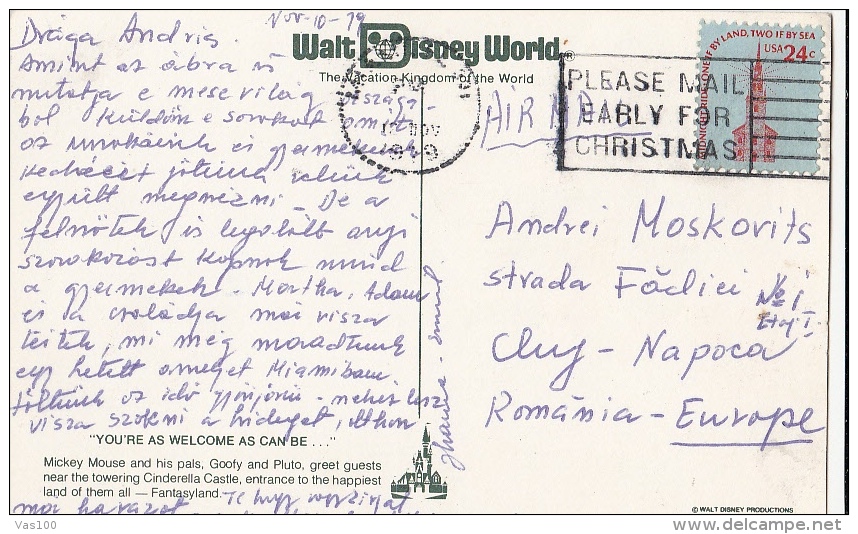 Nov-10-79
Drága Andris.
Amint az ábra is
mutatja e mese világ
ból küldöm e sorokat
az unokáink és gyermekeink
jöttünk velük
együtt megnézni - De a
felnőttek is legalább annyi
szorakozást kapnak mind
a gyermekek. Martha, Adam
és a családja már vissza
tértek, mi még maradtunk
egy hetett amelyet Miamiban
töltünk az idő gyönyörü - nehéz lesz
vissza szokni a hideget, itthon
Walt Disney World®
The Vacation Kingdom of the World
NOV
1979
AIR MAIL
PLEASE MAIL
EARLY FOR
CHRISTMAS
ONE IF BY LAND, TWO IF BY SEA
USA 24c
Andrei Moskovits
strada Făcliei No 1
Etaj I.
Cluj - Napoca
România - Europe
"YOU'RE AS WELCOME AS CAN BE . . ."
Mickey Mouse and his pals, Goofy and Pluto, greet guests
near the towering Cinderella Castle, entrance to the happiest
land of them all — Fantasyland.
© WALT DISNEY PRODUCTIONS
Vas100
www.delcampe.net